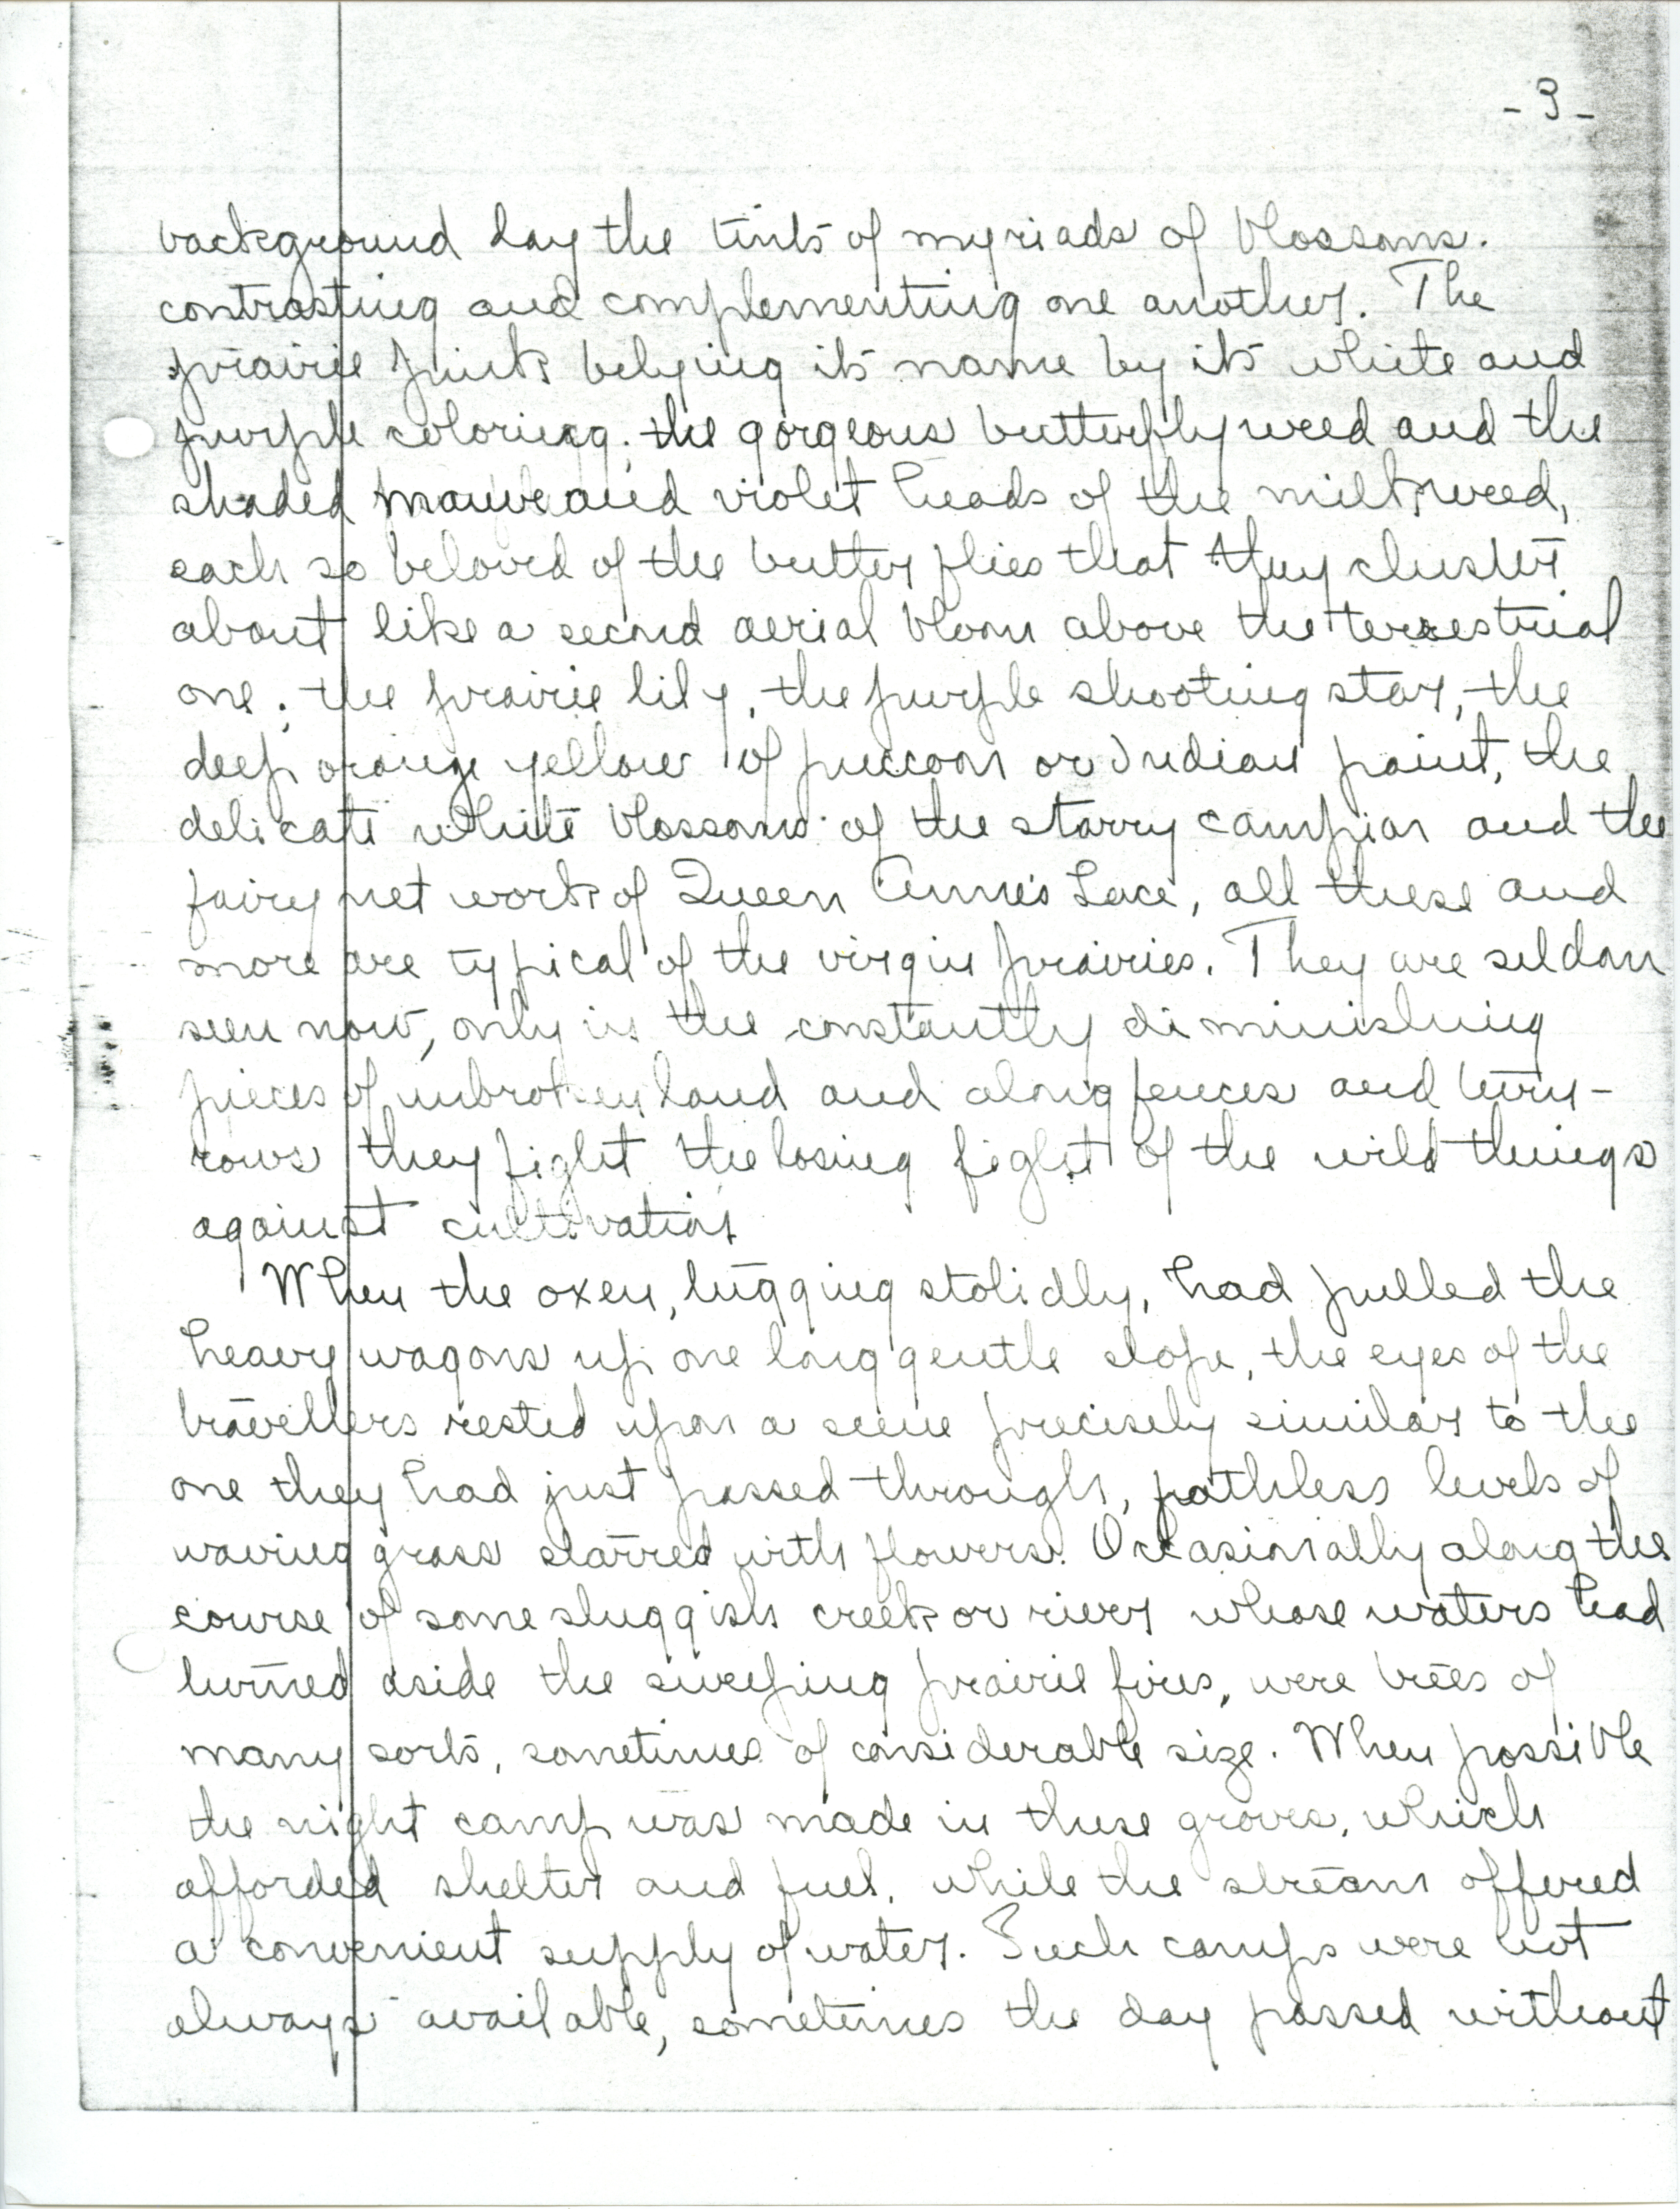 - 3 -
background lay the tints of myriads of blossoms.
contrasting and complementing one another. The
prairie pink belying its name by its white and
purple coloring; the gorgeous butterfly weed and the
shaded mauve and violet heads of the milkweed,
each so beloved of the butterflies that they cluster
about like a second aerial bloom above the terrestrial
one; the prairie lily, the purple shooting star, the
deep orange yellow of puccoon or Indian paint, the
delicate white blossoms of the starry campion and the
fairy net work of Queen Anne's Lace, all these and
more are typical of the virgin prairies. They are seldom
seen now, only in the constantly diminishing
pieces of unbroken land and along fences and turn-
rows they fight the losing fight of the wild things
against cultivation
When the oxen, tugging stolidly, had pulled the
heavy wagons up one long gentle slope, the eyes of the
travellers rested upon a scene precisely similar to the
one they had just passed through, pathless levels of
waving grass starred with flowers. Occasionally along the
course of some sluggish creek or river whose waters had
turned aside the sweeping prairie fires, were trees of
many sorts, sometimes of considerable size. When possible
the night camp was made in these groves, which
afforded shelter and fuel, while the stream offered
a convenient supply of water. Such camps were not
always available, sometimes the day passed without